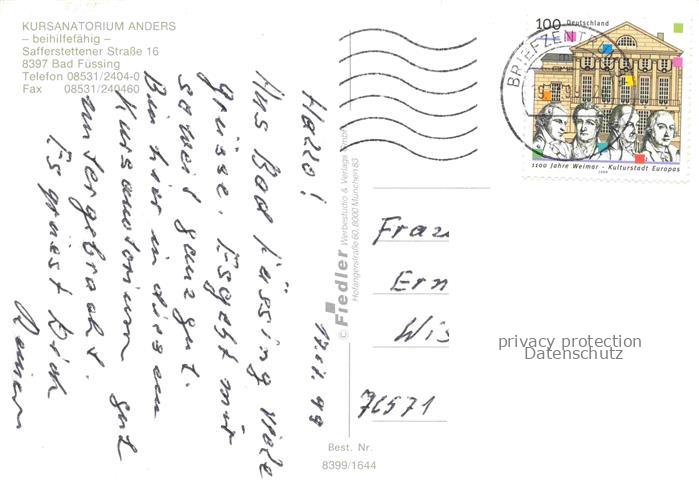 KURSANATORIUM ANDERS
– beihilfefähig –
Safferstettener Straße 16
8397 Bad Füssing
Telefon 08531/2404-0
Fax 08531/240460
17.07.99
Hallo!
Aus Bad Füssing viele
Grüsse. Es geht mir
soweit ganz gut.
Bin hier in diesem
Kursanatorium gut
untergebracht.
Es grüest Dich
© Fiedler Werbestudio & Verlags GmbH
Hofangerstraße 60, 8000 München 83
Best. Nr.
8399/1644
100 Deutschland
1100 Jahre Weimar - Kulturstadt Europas
1999
BRIEFZENTRUM
Frau
Ern
Wis
76571
privacy protection
Datenschutz